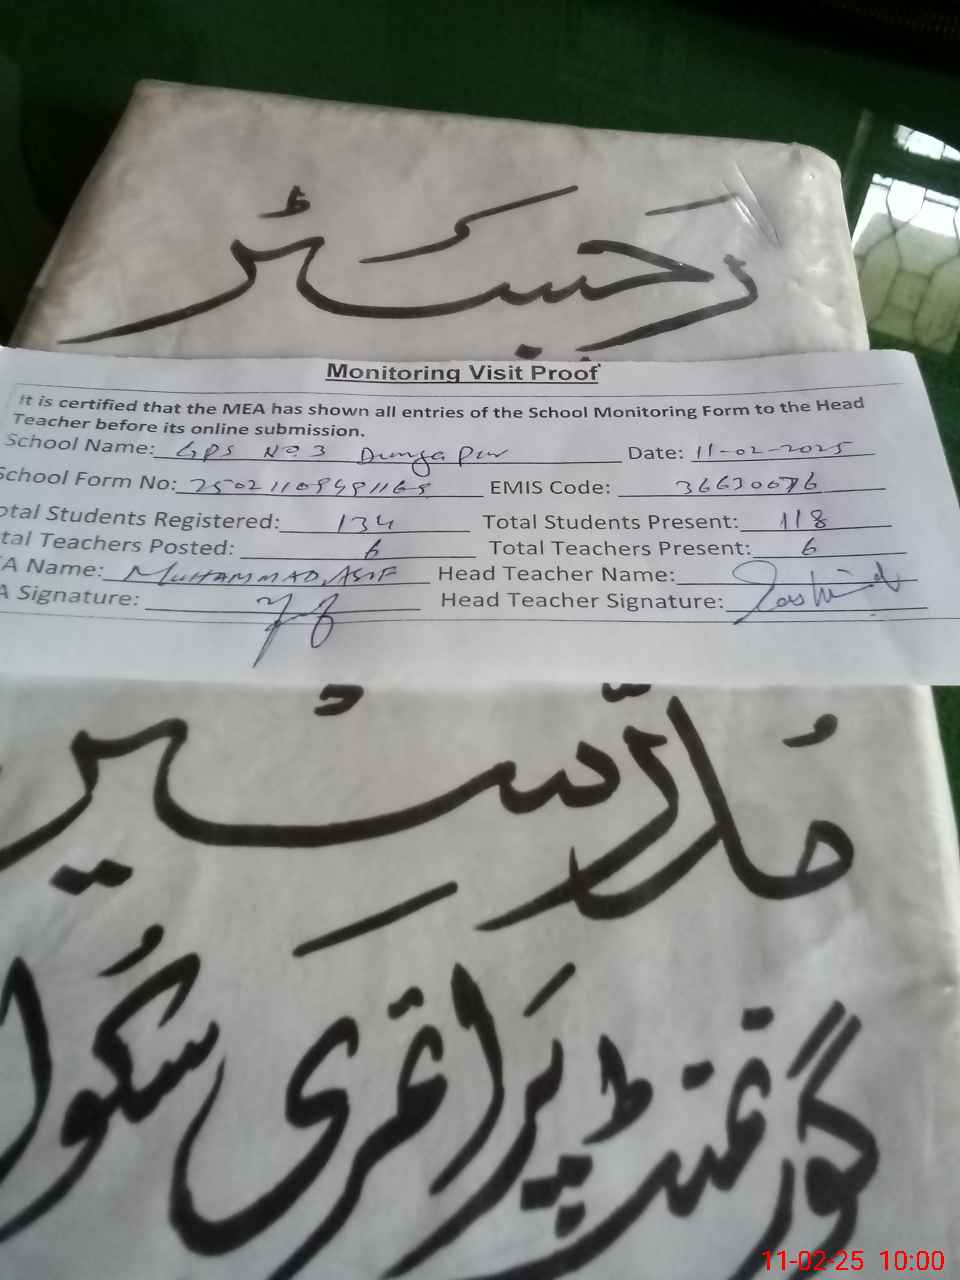 رجسٹر
Monitoring Visit Proof
It is certified that the MEA has shown all entries of the School Monitoring Form to the Head
Teacher before its online submission.
School Name: GPS No. 3 Dungapur Date: 11-02-2025
School Form No: EMIS Code: 36630076
otal Students Registered: 134 Total Students Present: 118
tal Teachers Posted: 6 Total Teachers Present: 6
EA Name: MUHAMMAD ASIF Head Teacher Name:
A Signature: Head Teacher Signature:
مُدرّسین
گورنمنٹ پرائمری سکول
11-02-25 10:00